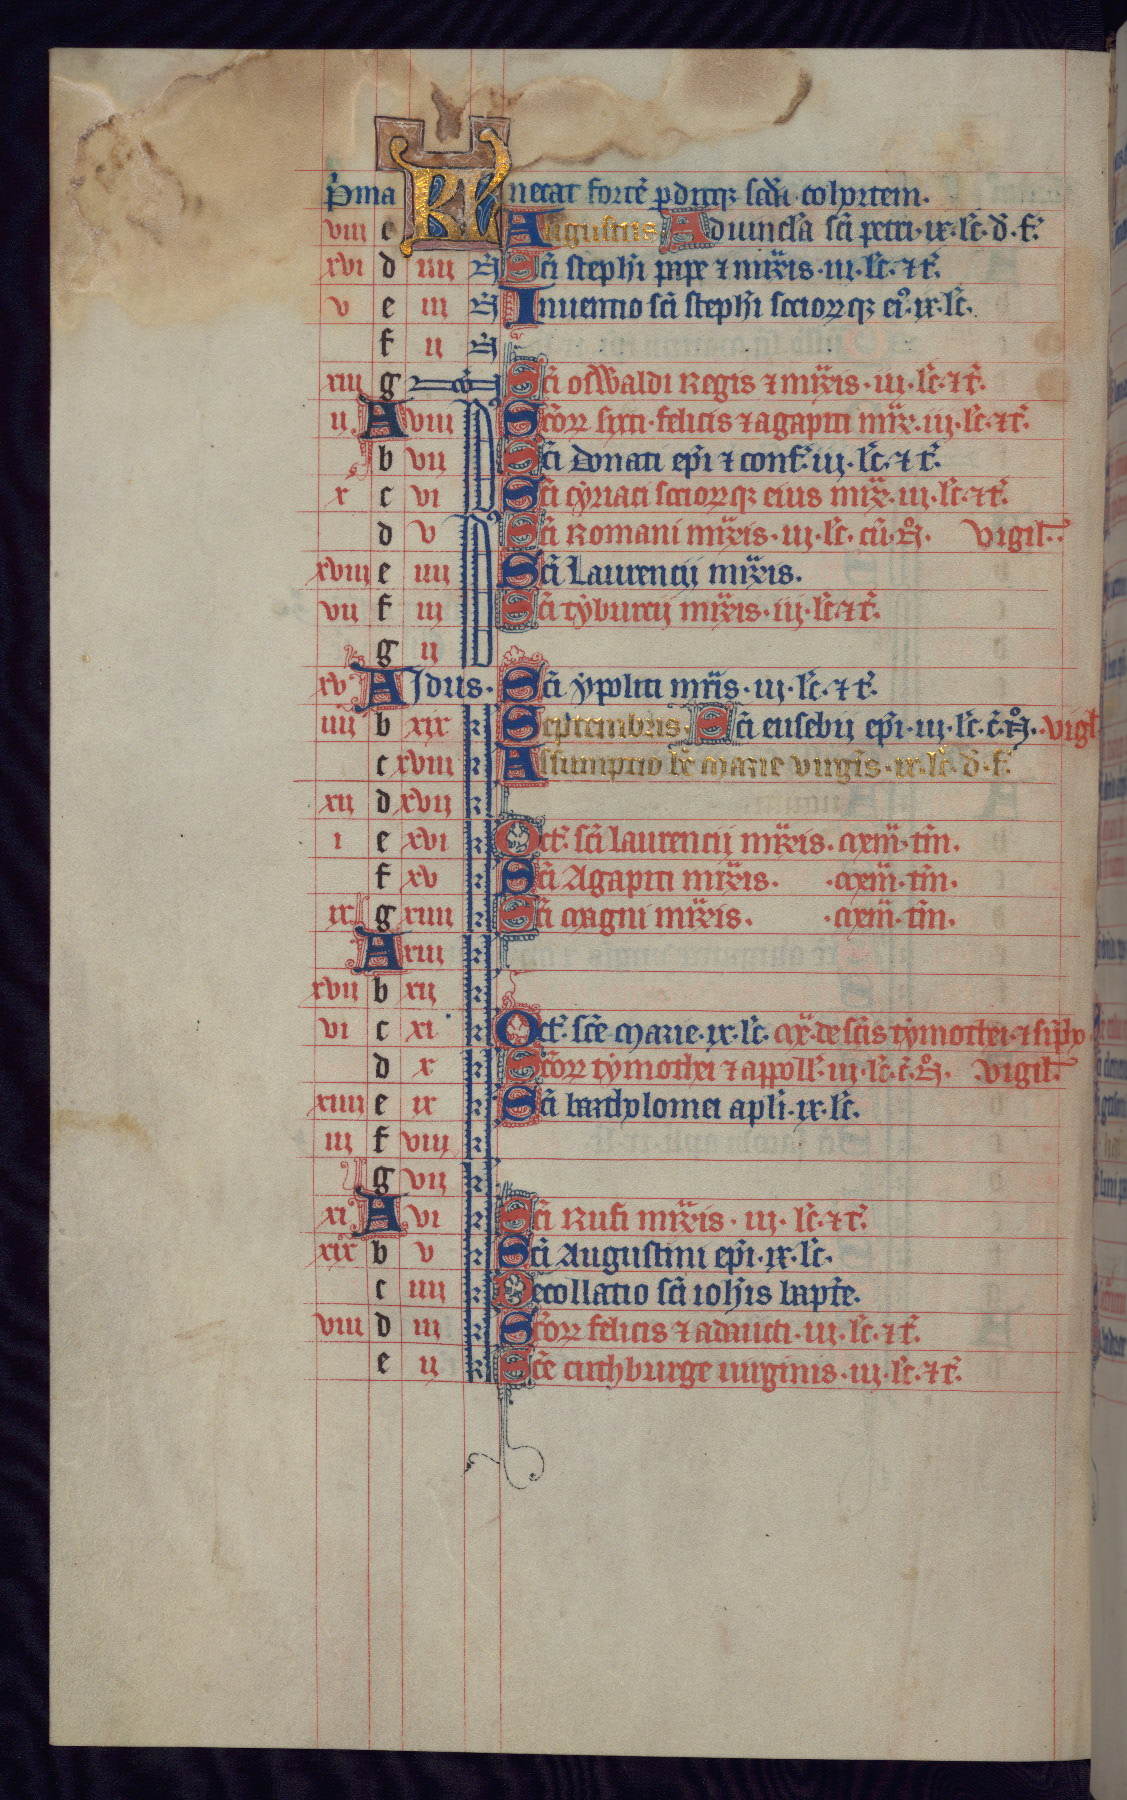 p̄ma KL necat fortē p̄ditqꝫ scd̄a cohortem.
viii c Augustus Aduincl̄a sc̄i petri·ix·lc̄·d̄·f̄·
xvi d iiii N̄ Sc̄i steph̄i pape ⁊ mr̄is·iii·lc̄·⁊ t̄·
v e iii N̄ Inuentio sc̄i steph̄i socioꝝqꝫ ei᷒·ix·lc̄·
f ii N̄
xiii g No Sc̄i osWaldi Regis ⁊ mr̄is·iii·lc̄·⁊ t̄·
ii A viii Sc̄oꝝ sixti·felicis ⁊ agapiti mr̄·iii·lc̄·⁊ t̄·
b vii Sc̄i Donati ep̄i ⁊ conf̄·iii·lc̄·⁊ t̄·
x c vi Sc̄i cẏriaci socioꝝqꝫ eius mr̄·iii·lc̄·⁊ t̄·
d v Sc̄i Romani mr̄is·iii·lc̄·cū·N̊· vigil̄·
xviii e iiii Sc̄i Laurencij mr̄is.
vii f iii Sc̄i tẏburcij mr̄is·iii·lc̄·⁊ t̄·
g ii
xv A Idus· Sc̄i ẏpoliti mr̄is·iii·lc̄·⁊ t̄·
iiii b xix k Septembris· Sc̄i eusebij ep̄i·iii·lc̄·c̄·N̊··vigl̄
c xviii k Assumptio be̅ marie virgīs·ix·lc̄·d̄·f̄·
xii d xvii k
i e xvi k Oct̄· sc̄i laurencij mr̄is· cxm̄·tm̄·
f xv k Sc̄i Agapiti mr̄is· ·cxm̄·tm̄·
ix g xiiii k Sc̄i magni mr̄is· ·cxm̄·tm̄·
A xiii k
xvii b xii k
vi c xi k Oct̄· sc̄e marie·ix·lc̄· mx̄·de sc̄is tẏmothei·⁊ sīpho
d x k Sc̄oꝝ tẏmothei ⁊ appoll̄·iii·lc̄·c̄·N̊· vigil̄·
xiiii e ix k Sc̄i bartholomei apl̄i·ix·lc̄·
iii f viii k
g vii k
xi A vi k Sc̄i Rufi mr̄is·iii·lc̄·⁊ t̄·
xix b v k Sc̄i Augustini ep̄i·ix·lc̄·
c iiii k Decollatio sc̄i ioh̄is bapt̄e·
viii d iii k Sc̄oꝝ felicis ⁊ adaucti·iii·lc̄·⁊ t̄·
e ii k Sc̄e cuthburge uirginis·iii·lc̄·⁊ t̄·